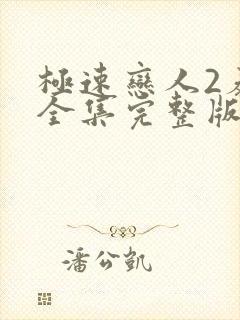 極速戀人2
全集完整版
潘公凱